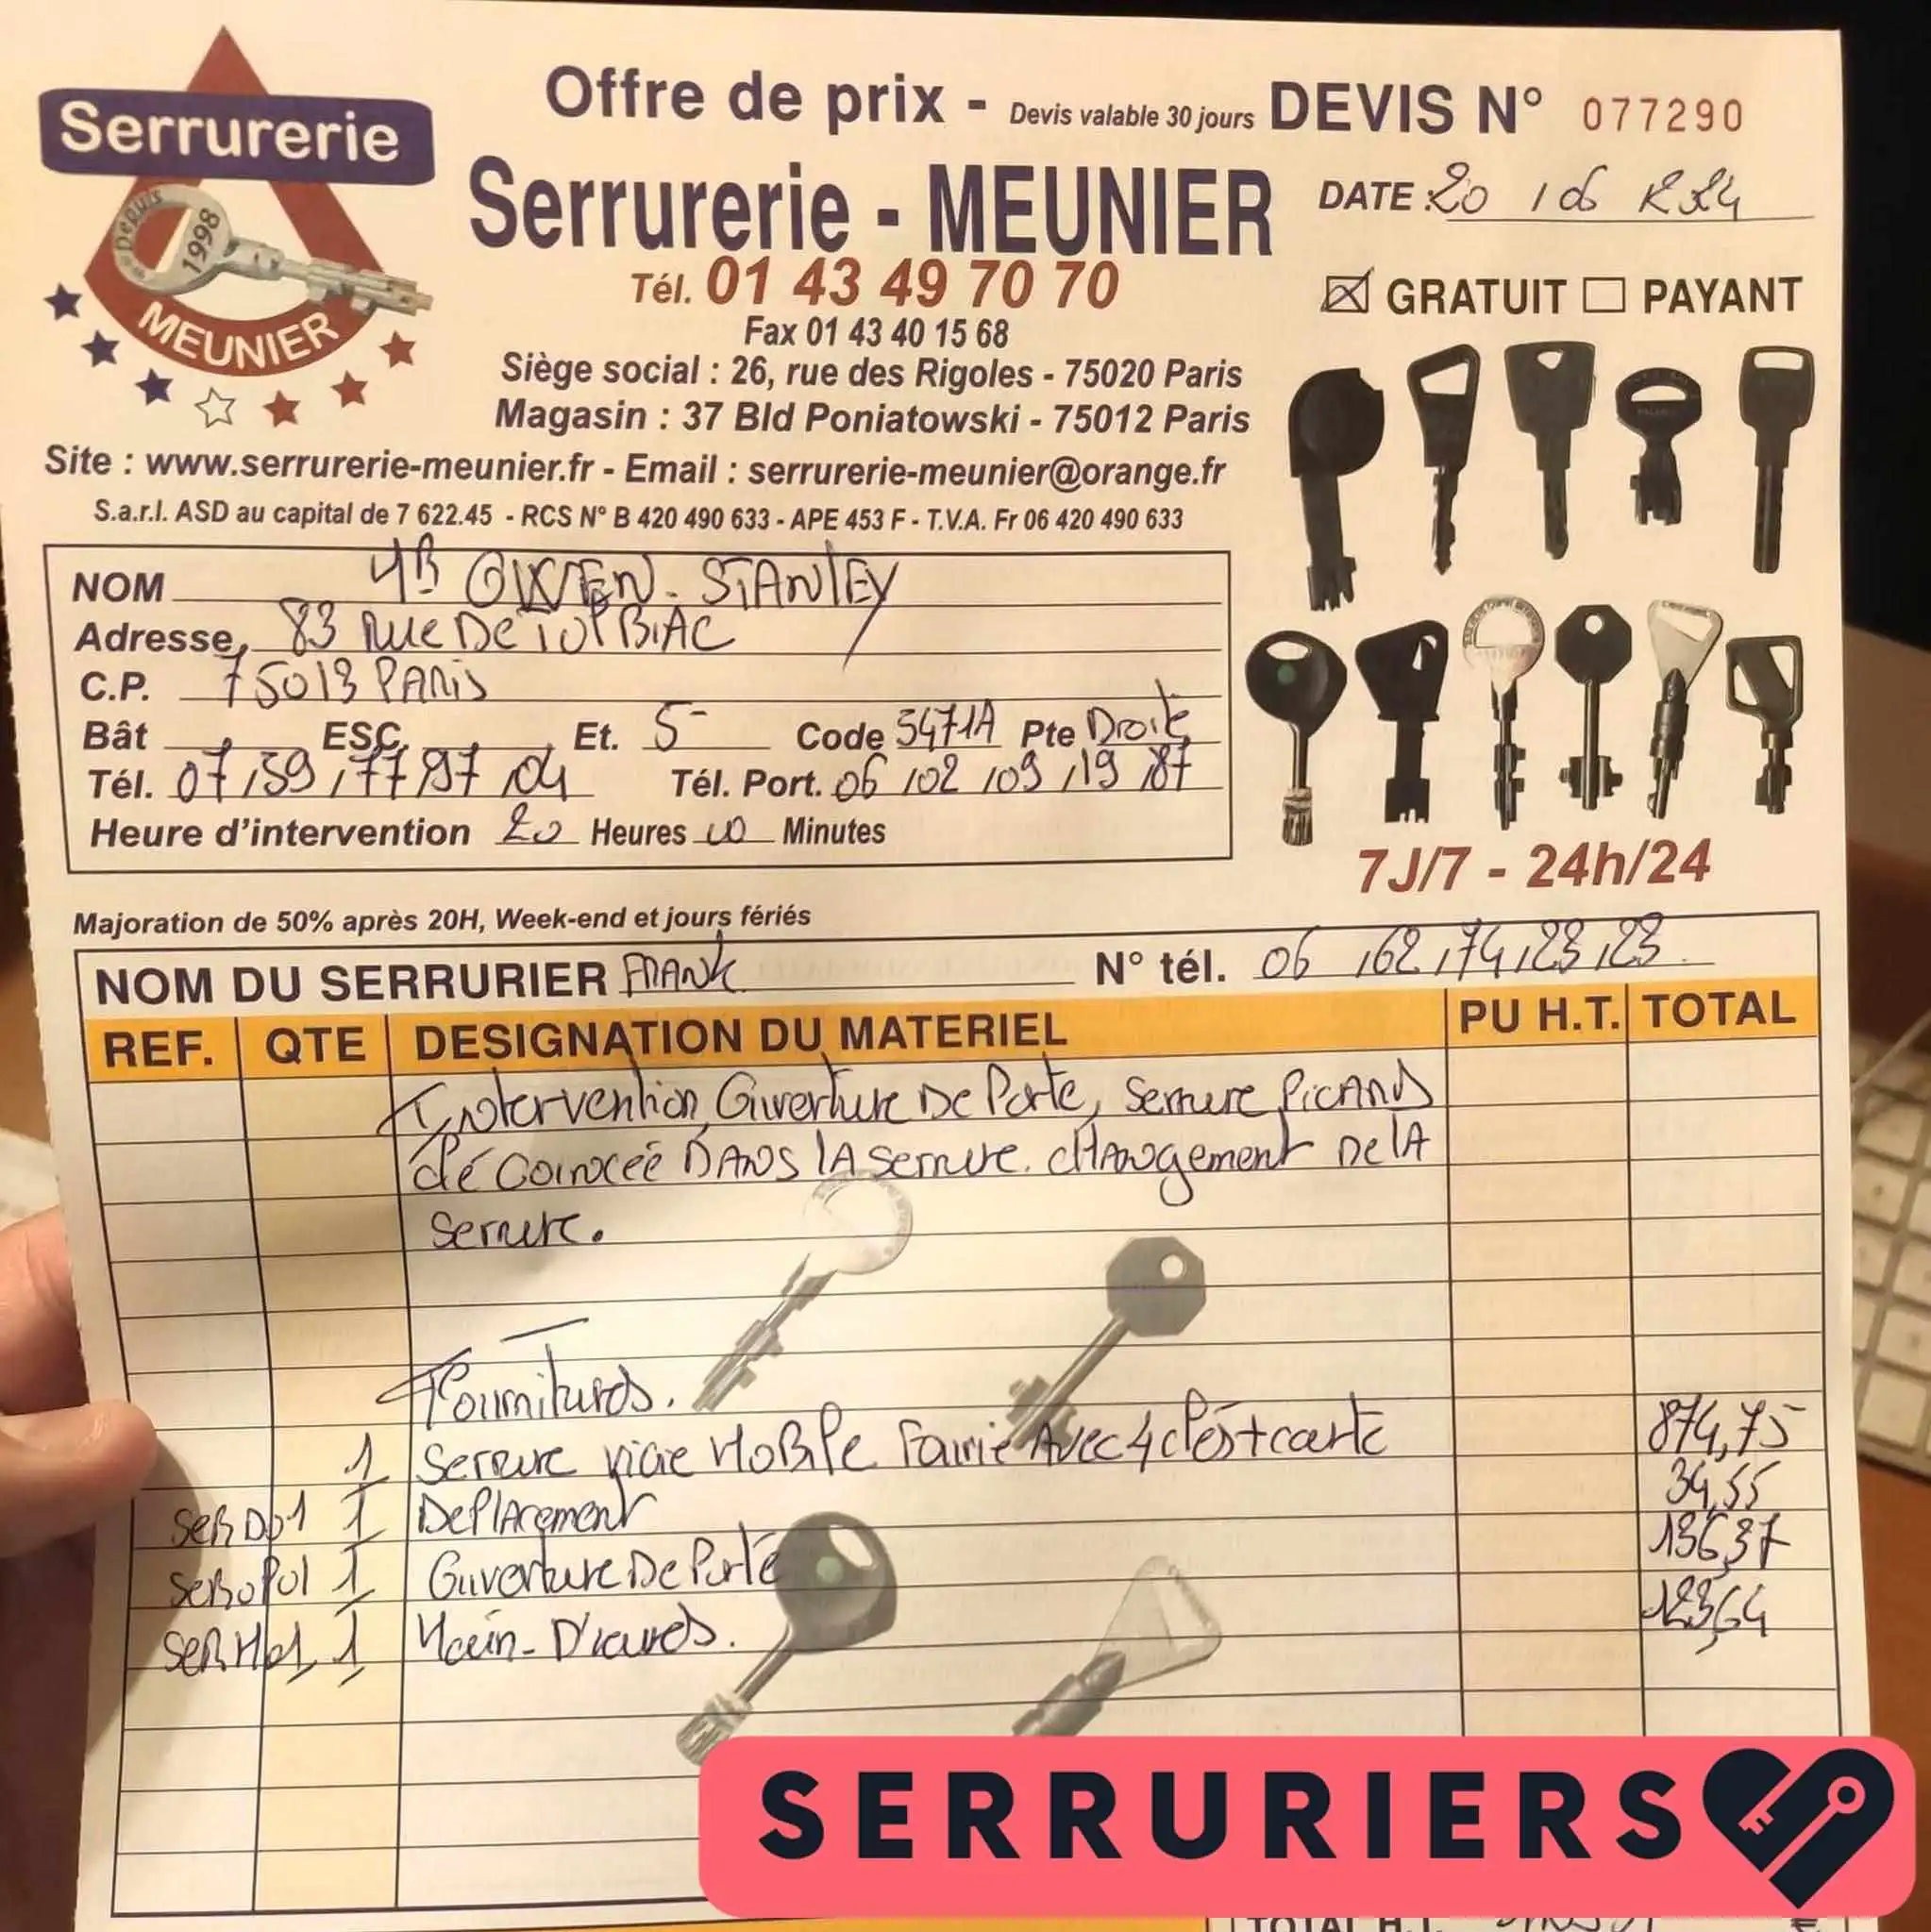 Serrurerie
Depuis
1998
MEUNIER
Offre de prix - Devis valable 30 jours DEVIS N° 077290
Serrurerie - MEUNIER
DATE : 20 / 06
Tél. 01 43 49 70 70
GRATUIT PAYANT
Fax 01 43 40 15 68
Siège social : 26, rue des Rigoles - 75020 Paris
Magasin : 37 Bld Poniatowski - 75012 Paris
Site : www.serrurerie-meunier.fr - Email : serrurerie-meunier@orange.fr
S.a.r.l. ASD au capital de 7 622.45 - RCS N° B 420 490 633 - APE 453 F - T.V.A. Fr 06 420 490 633
NOM STANlEY
Adresse 83 Rue De TolBiAC
C.P. 75013 PARiS
Bât ESC. Et. 5 Code 5471A Pte Droite
Tél. 07,59,77,97,04 Tél. Port. 06,02,09,19,87
Heure d'intervention 20 Heures 00 Minutes
7J/7 - 24h/24
Majoration de 50% après 20H, Week-end et jours fériés
NOM DU SERRURIER FRANk N° tél. 06,62,74,23,23
REF. QTE DESIGNATION DU MATERIEL PU H.T. TOTAL
Intervention Ouverture De Porte, Serrure PicARD
clé Coincéé DANS lA Serrure. chANgement De lA
Serrure.
Fournitures.
1 Serrure Avec 4 clés + carte 874,75
1 DéPlAcement 34,55
1 Ouverture De Porte 136,37
1 Main-D'œuvres. 123,64
SERRURIERS
TOTAL H.T. €